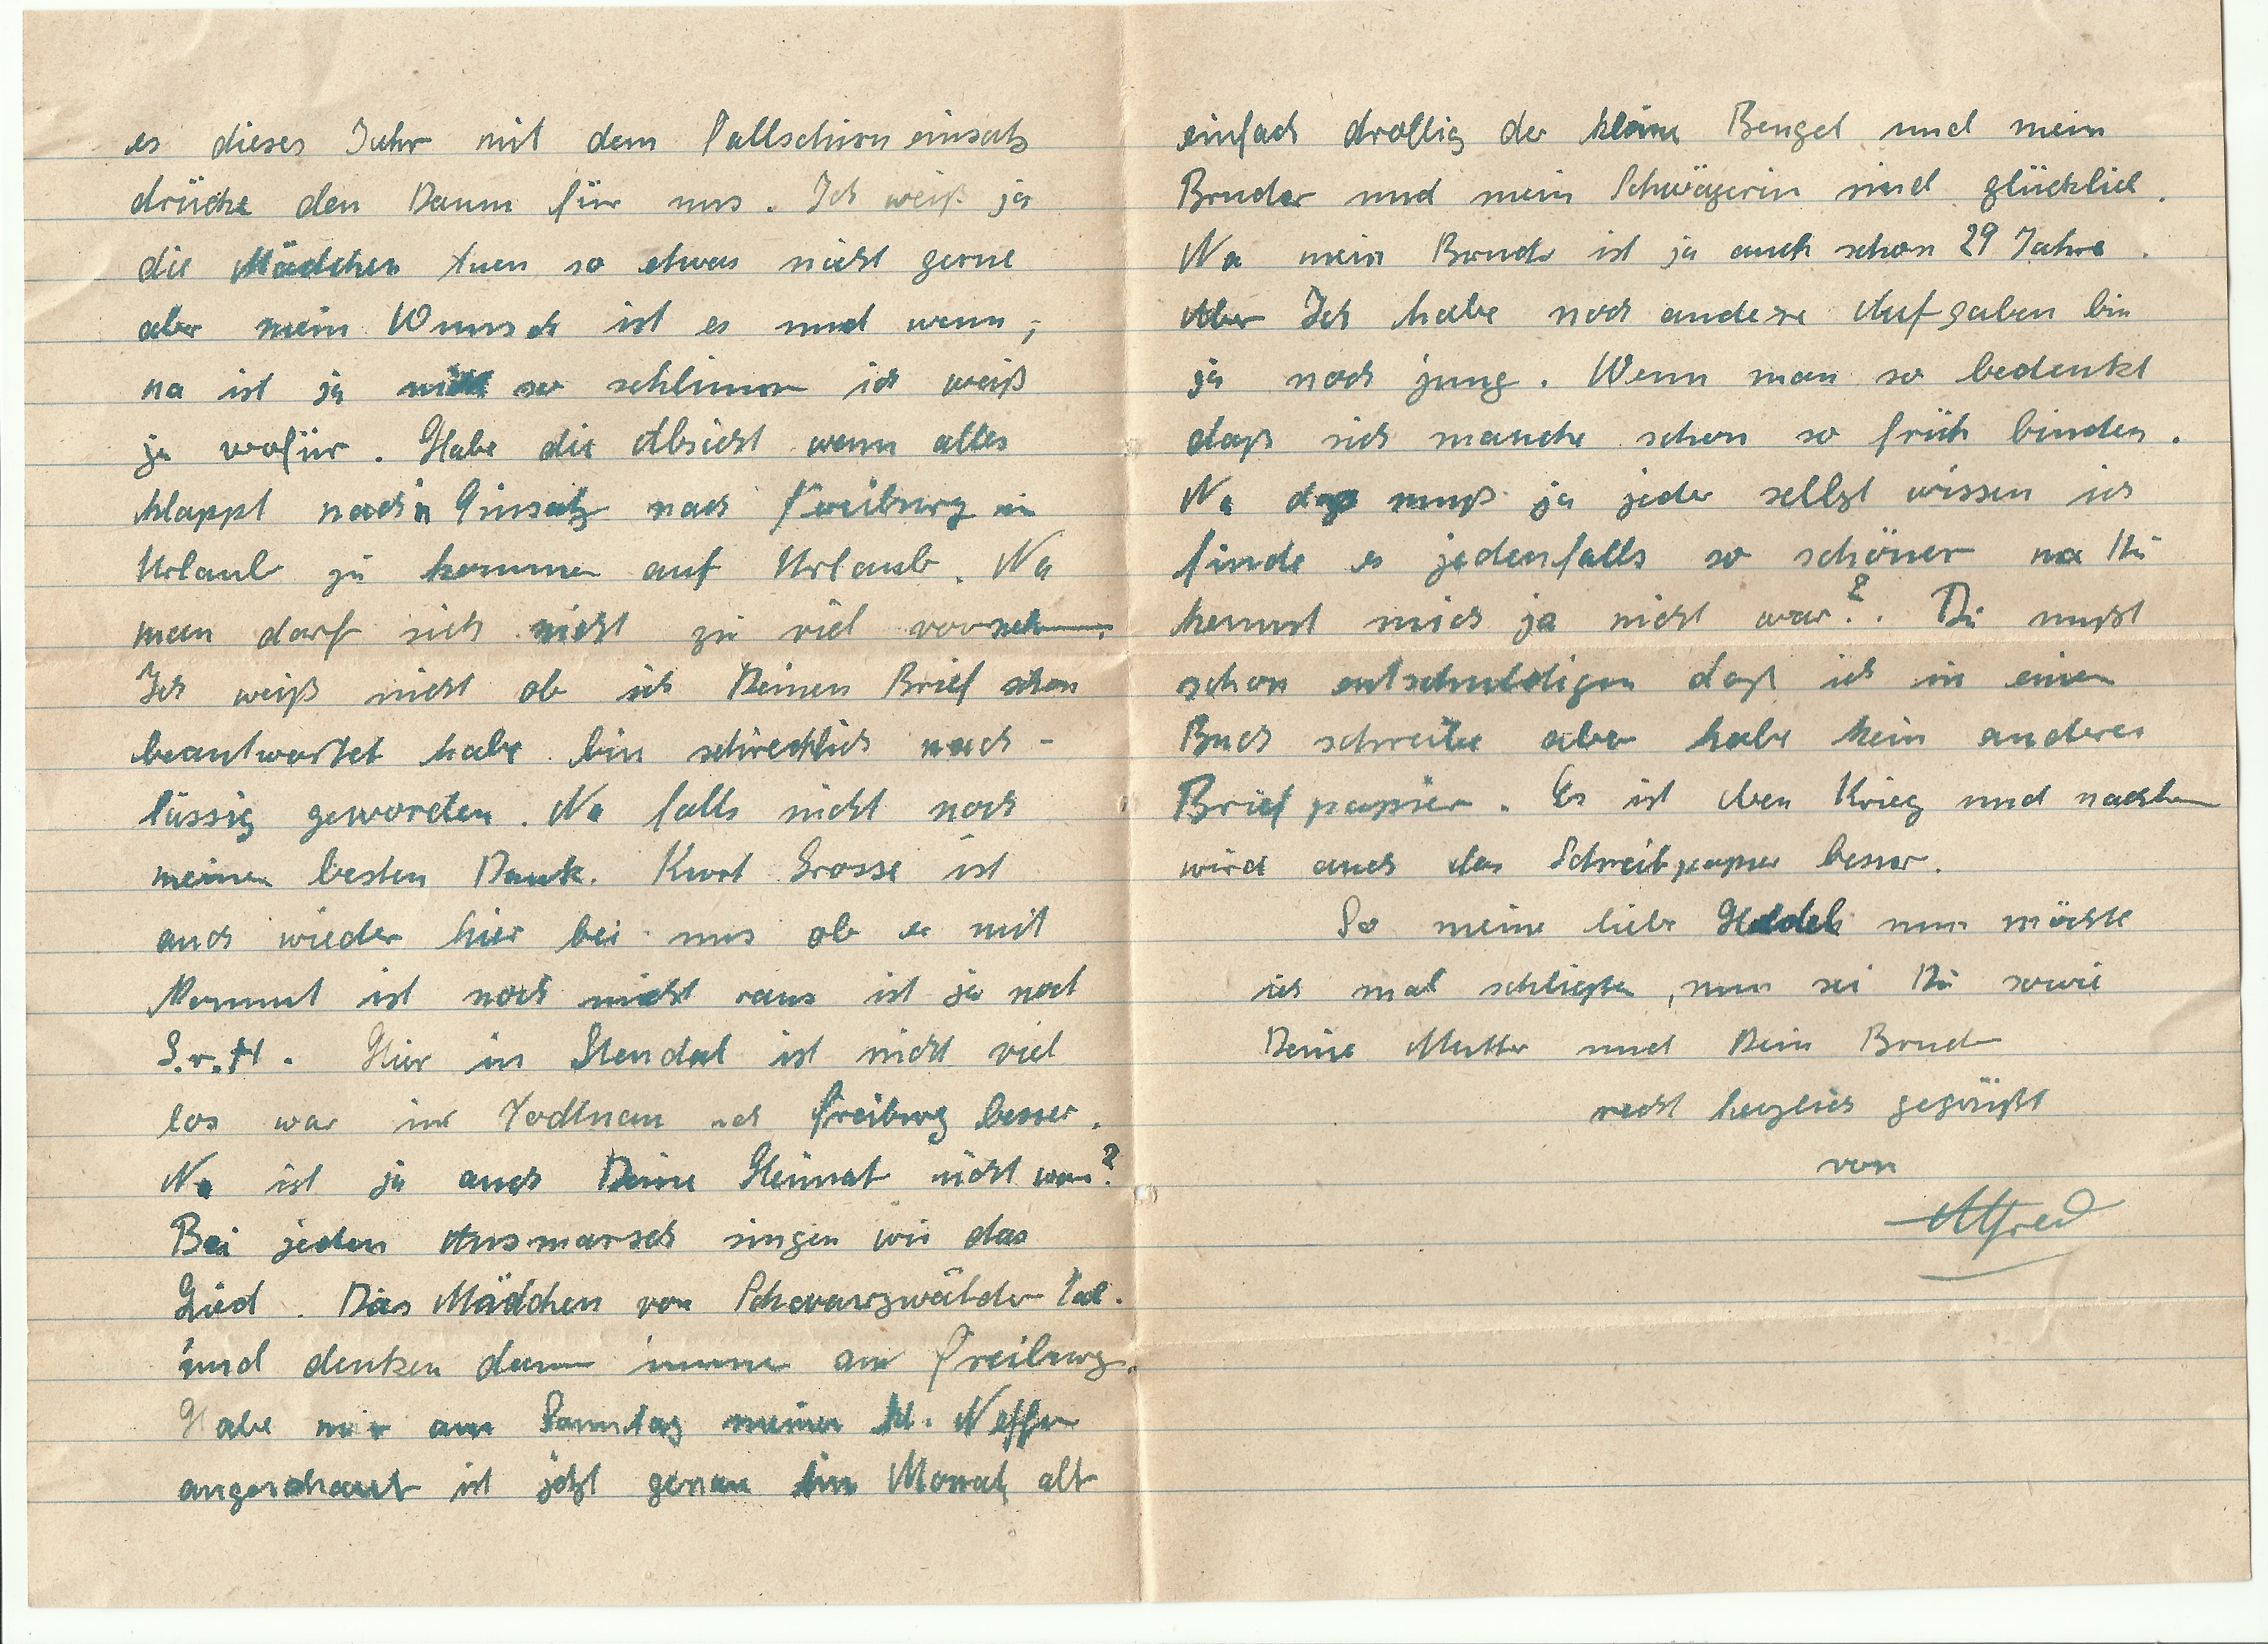 es dieses Jahr mit dem Fallschirmeinsatz
drücke den Daum für uns. Ich weiß ja
die Mädchen tuen so etwas nicht gerne
aber mein Wunsch ist es und wenn,
na ist ja nicht so schlimm ich weiß
ja wofür. Habe die Absicht wenn alles
klappt nach'n Einsatz nach Freiburg in
Urlaub zu kommen auf Urlaub. Na
man darf sich nicht zu viel vornehmen.
Ich weiß nicht ob ich Deinen Brief schon
beantwortet habe bin schrecklich nach-
lässig geworden. Na falls nicht noch
meinen besten Dank. Kurt Grosse ist
auch wieder hier bei uns ob er mit
kommt ist noch nicht raus ist ja noch
G.v.H. Hier in Stendal ist nicht viel
los war in Todtnau und Freiburg besser.
Na ist ja auch Deine Heimat nicht war?
Bei jeden Ausmarsch singen wir das
Lied. Das Mädchen von Schwarzwälder Tal.
und denken dann immer an Freiburg.
Habe mir am Sonntag meinen kl. Neffen
angeschaut ist jetzt genau ein Monat alt
einfach drollig der kleine Bengel und mein
Bruder und mein Schwägerin sind glücklich.
Na mein Bruder ist ja auch schon 29 Jahre.
Aber Ich habe noch andere Aufgaben bin
ja noch jung. Wenn man so bedenkt
daß sich manche schon so früh binden.
Na das muß ja jeder selbst wissen ich
finde es jedenfalls so schöner na Du
kennst mich ja nicht war?. Du mußt
schon entschuldigen daß ich in einen
Buch schreibe aber habe kein anderes
Briefpapier. Es ist eben Krieg und nachdem
wird auch das Schreibpapier besser.
So meine liebe nun möchte
ich mal schließen, nun sei Du sowie
Deine Mutter und Dein Bruder
recht herzlich gegrüßt
von
Alfred